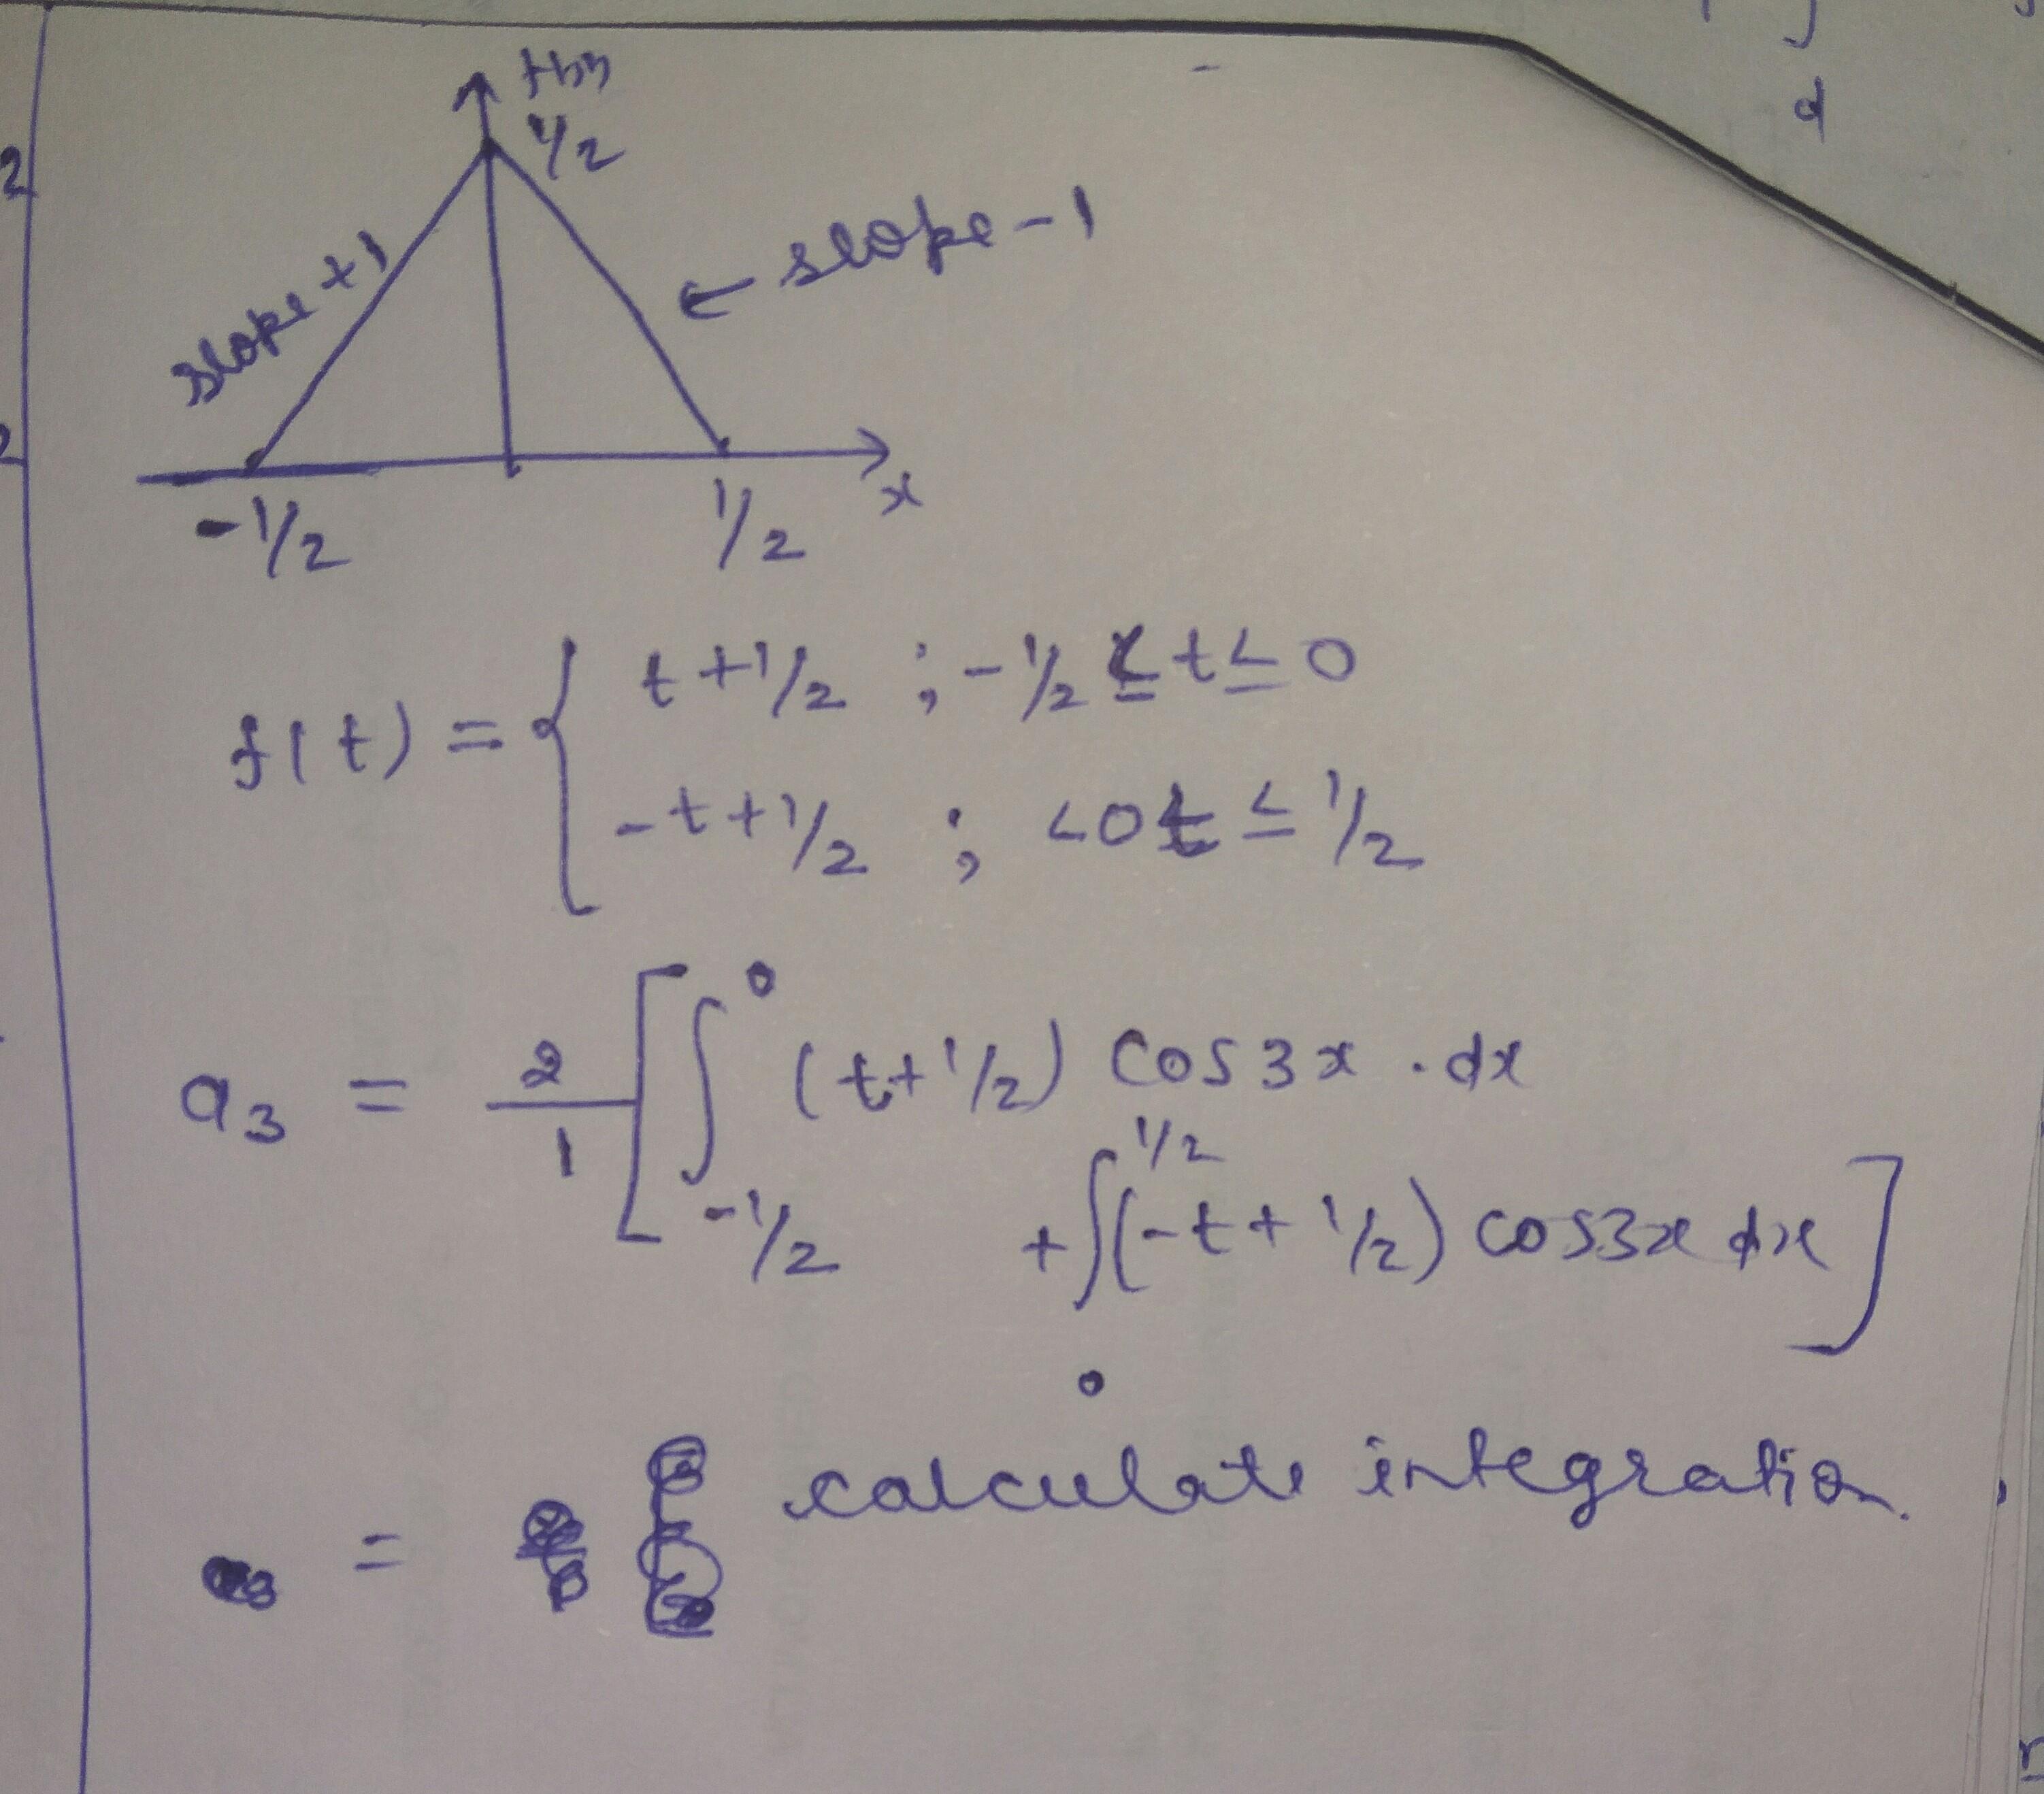 1/2
slope +1
← slope -1
-1/2
1/2
x
f(t) = { t + 1/2 ; -1/2 ≤ t ≤ 0
-t + 1/2 ; <0t ≤ 1/2
a₃ = 2/1 [ ∫ from -1/2 to 0 (t + 1/2) cos3x . dx
+ ∫ from 0 to 1/2 (-t + 1/2) cos3x dx ]
= calculate integration.